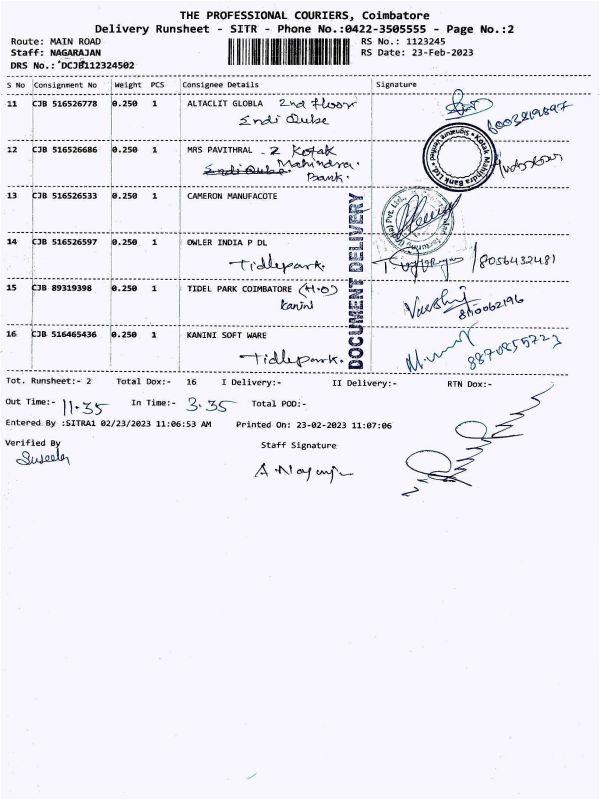 THE PROFESSIONAL COURIERS, Coimbatore
Delivery Runsheet - SITR - Phone No.:0422-3505555 - Page No.:2
Route: MAIN ROAD RS No.: 1123245
Staff: NAGARAJAN RS Date: 23-Feb-2023
DRS No.: DCJB112324502
S No Consignment No Weight PCS Consignee Details Signature
11 CJB 516526778 0.250 1 ALTACLIT GLOBLA 2nd floor
Endi Qube
12 CJB 516526686 0.250 1 MRS PAVITHRAL Kotak
Endi Qube Mahindra
Bank.
Kotak Mahindra Bank Ltd. Signature Verified
13 CJB 516526533 0.250 1 CAMERON MANUFACOTE
14 CJB 516526597 0.250 1 OWLER INDIA P DL
Tidlepark. /8056432481
15 CJB 89319398 0.250 1 TIDEL PARK COIMBATORE (H.O)
Kanini
8110062196
16 CJB 516465436 0.250 1 KANINI SOFT WARE
Tidlepark. 8870855723
DOCUMENT DELIVERY
Tot. Runsheet:- 2 Total Dox:- 16 I Delivery:- II Delivery:- RTN Dox:-
Out Time:- 11.35 In Time:- 3.35 Total POD:-
Entered By :SITRA1 02/23/2023 11:06:53 AM Printed On: 23-02-2023 11:07:06
Verified By Staff Signature